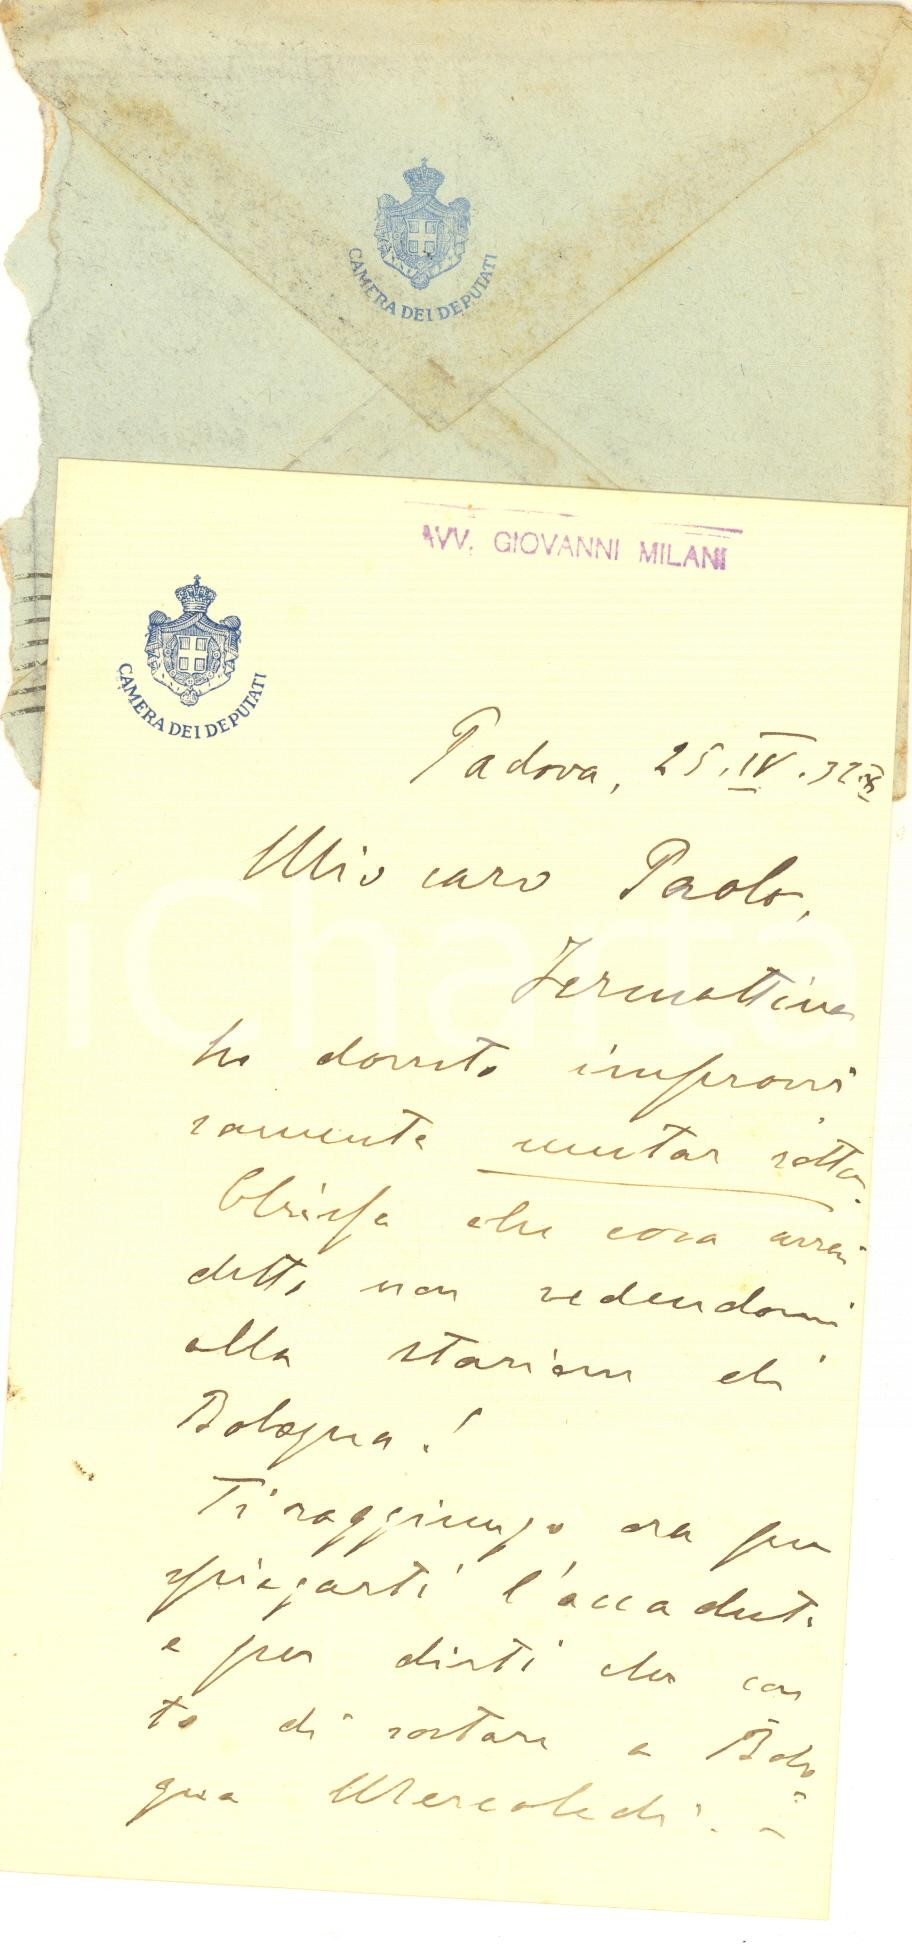 CAMERA DEI DEPUTATI
AVV. GIOVANNI MILANI
CAMERA DEI DEPUTATI
Padova, 25.IV.32.X
Mio caro Paolo,
Iermattina
ho dovuto improvvi
samente mutar rotta.
Chissà che cosa avrai
detto non vedendomi
alla stazione di
Bologna!
Ti raggiungo ora per
spiegarti l'accaduto
e per dirti che con
to di sostare a Bolo-
gna Mercoledì. -
iCharta